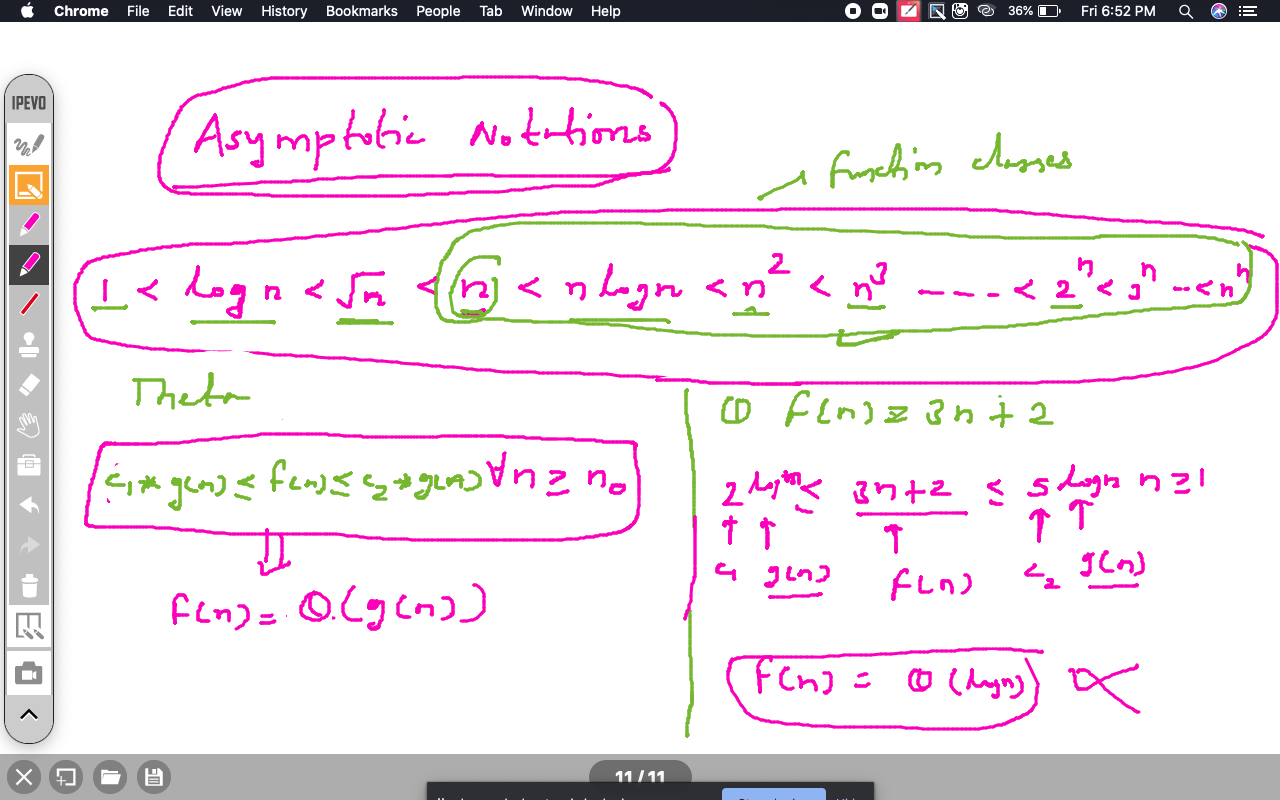 Chrome File Edit View History Bookmarks People Tab Window Help 36% Fri 6:52 PM
IPEVO
Asymptotic Notations
function classes
1 < log n < √n < n < n log n < n² < n³ ---- < 2ⁿ < 3ⁿ -- < nⁿ
Theta
c₁ * g(n) ≤ f(n) ≤ c₂ * g(n) ∀ n ≥ n₀
f(n) = Θ(g(n))
① f(n) = 3n + 2
2 log n ≤ 3n+2 ≤ 5 log n n ≥ 1
c₁ g(n) f(n) c₂ g(n)
f(n) = Θ(log n)
11 / 11